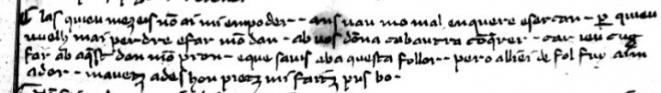 E las quieu mezeus nō ai mi enpoder · ans uau mo mal enquere esercan · ꝑ quieu
uuelh mai perdre efar mō dan · ab uos dōna cabautra cōqrer · car ieu cug
far ab aqst dan mon pron · eque sauis aba questa follor · pero aley de fol fin am
ador · mauetz ades hon pietz mi faitz pus bo ·